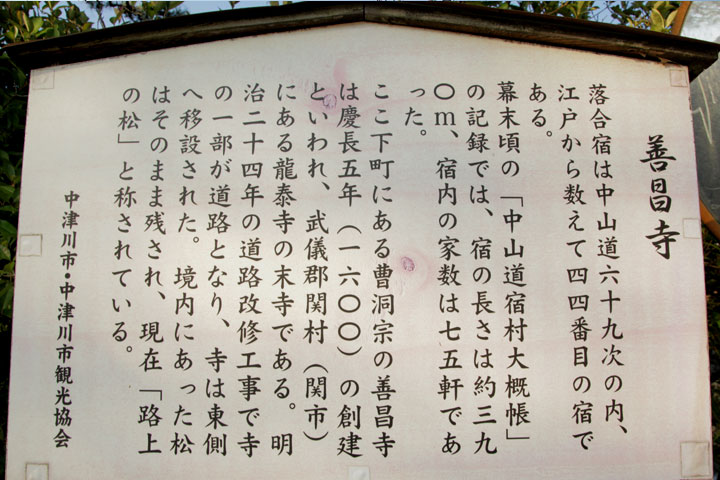 善昌寺
落合宿は中山道六十九次の内、
江戸から数えて四四番目の宿で
ある。
幕末頃の「中山道宿村大概帳」
の記録では、宿の長さは約三九
〇m、宿内の家数は七五軒であ
った。
ここ下町にある曹洞宗の善昌寺
は慶長五年（一六〇〇）の創建
といわれ、武儀郡関村（関市）
にある龍泰寺の末寺である。明
治二十四年の道路改修工事で寺
の一部が道路となり、寺は東側
へ移設された。境内にあった松
はそのまま残され、現在「路上
の松」と称されている。
中津川市・中津川市観光協会